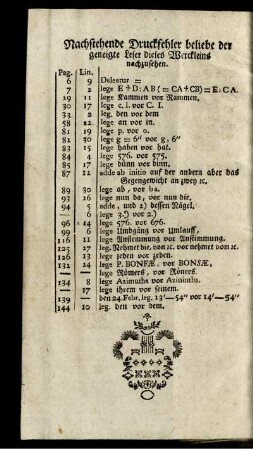 Nachstehende Druckfehler beliebe der
geneigte Leser dieses Werckleins
nachzusehen.
Pag. Lin.
6 9 Deleatur =
7 2 lege E + D: A B (= CA + CB) = E: C A.
19 11 lege Kammen vor Rammen.
30 17 lege c. l. vor C. I.
33 2 leg. den vor dem
58 12 lege an vor in.
81 19 lege p. vor o.
82 30 lege g = 6'' vor g, 6''
83 15 lege haben vor hat.
84 4 lege 576. vor 575.
85 17 lege dünn vor dinn.
87 12 adde ab initio auf der andern aber das
Gegengewicht an zwey ꝛc.
89 30 lege ab, vor ba.
93 26 lege nun da, vor nun die.
94 5 adde, und 2) dessen Nägel,
— 6 lege 3.) vor 2.)
96 14 lege 576. vor 676.
99 6 lege Umbgäng vor Umlauff,
116 11 lege Anstemmung vor Anstimmung.
125 27 leg. Nehmet die, vom ꝛc. vor nehmet vom ꝛc.
126 13 lege jeden vor jeden.
132 24 lege P. BONFÆ, vor BONSÆ,
— lege Römers, vor Röners.
134 8 lege Azimuths vor Azimiths.
— 17 lege ihrem vor seinem.
139 — den 24. Febr. leg. 13'—54'' vor 14'—54''
144 10 leg. den vor dem.